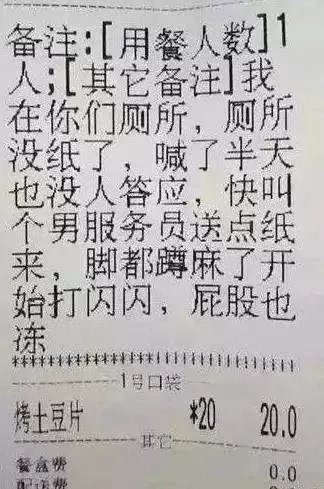 备注:[用餐人数]1
人;[其它备注]我
在你们厕所，厕所
没纸了，喊了半天
也没人答应，快叫
个男服务员送点纸
来，脚都蹲麻了开
始打闪闪，屁股也
冻
1号口袋
烤土豆片 *20 20.0
其它
餐盒费 0.0
配送费 0.0